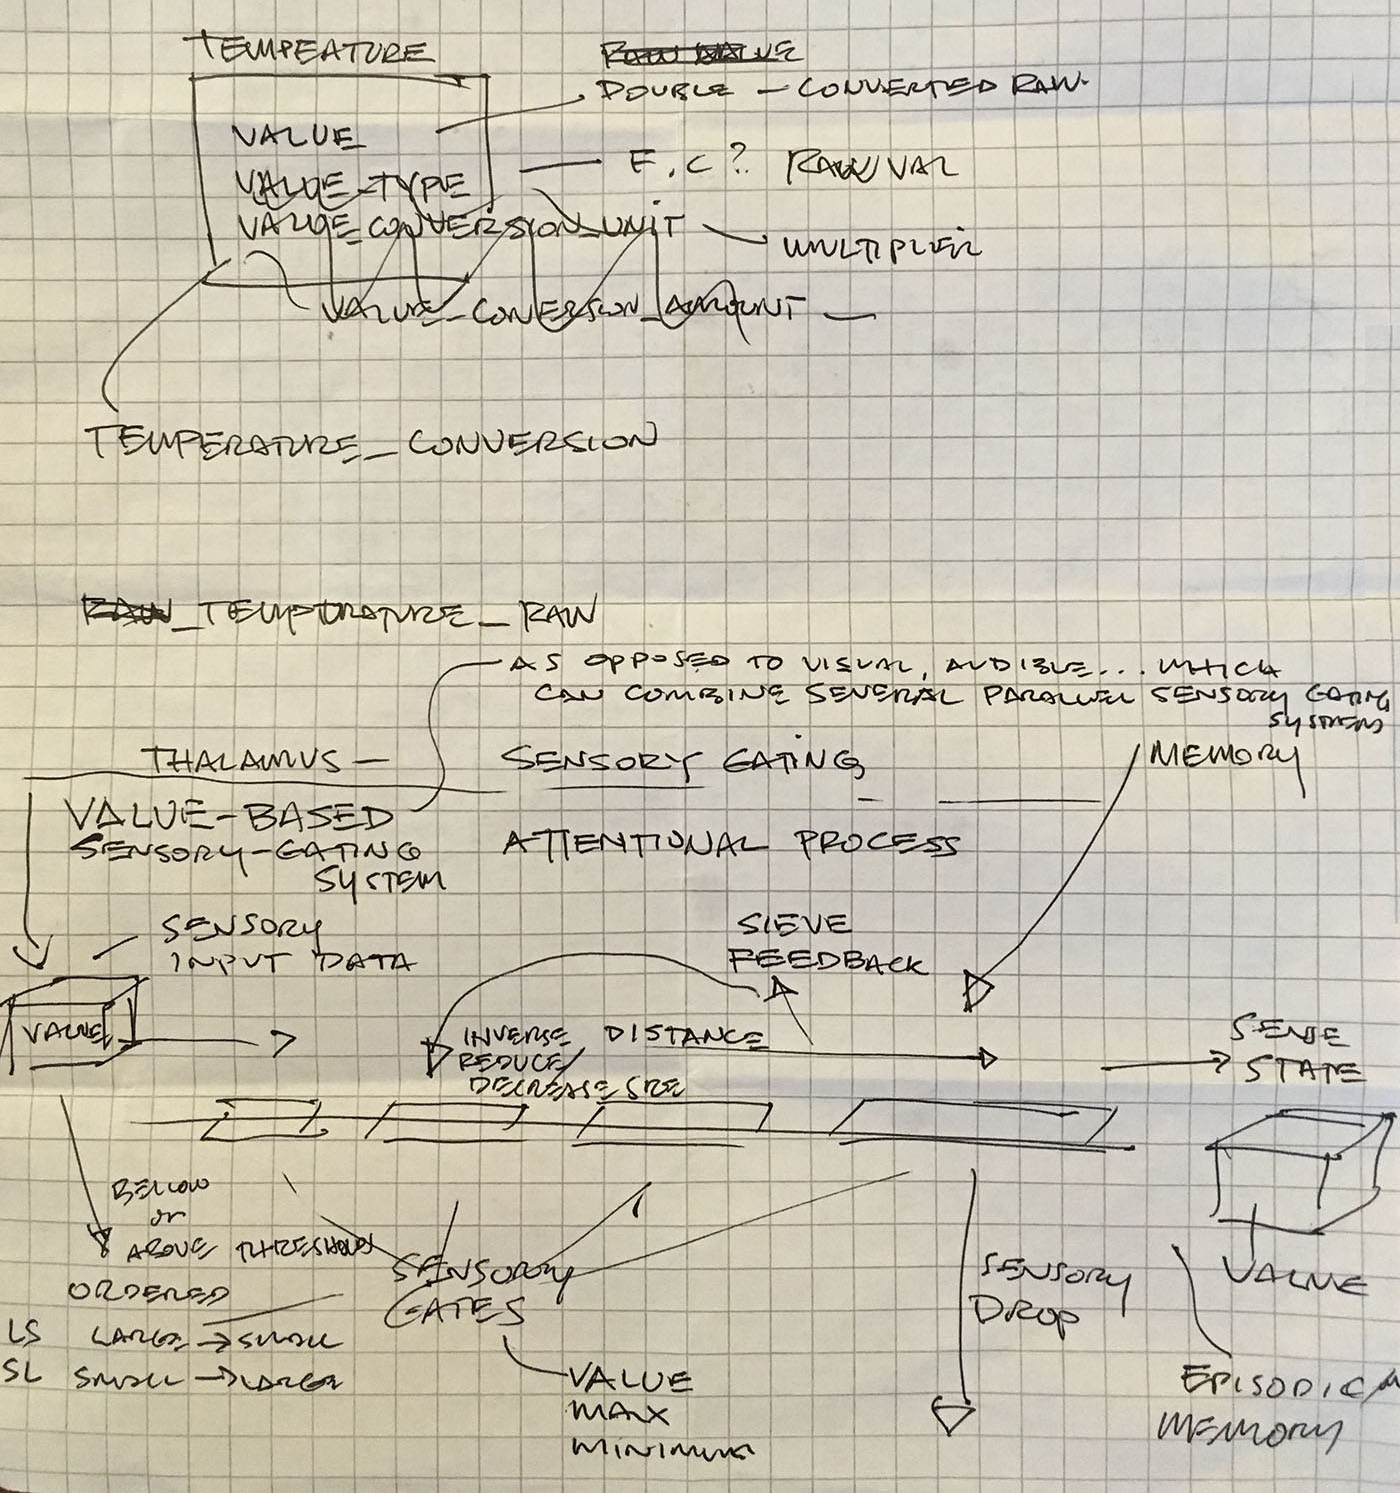 TEMPEATURE
RAW VALUE
DOUBLE — CONVERTED RAW
VALUE
VALUE_TYPE
F, C? RAW VAL
VALUE_CONVERSION_UNIT
MULTIPLIER
VALUE_CONERSION_AMOUNT —
TEMPERATURE_CONVERSION
RAW_TEMPURATURE_RAW
AS OPPOSED TO VISUAL, AUDIBLE... WHICH
CAN COMBINE SEVERAL PARALLEL SENSORY GATING
SYSTEMS
THALAMUS —
SENSORY GATING
MEMORY
VALUE-BASED
SENSORY-GATING
SYSTEM
ATTENTIONAL PROCESS
SENSORY
INPUT DATA
SIEVE
FEEDBACK
VALUE
INVERSE DISTANCE
REDUCE/
DECREASE SIZE
SENSE
STATE
BELLOW
or
ABOVE THRESHOLD
ORDERED
LS LARGE → SMALL
SL SMALL → LARGER
SENSORY
GATES
VALUE
MAX
MINIMUM
SENSORY
DROP
VALUE
EPISODIC
MEMORY